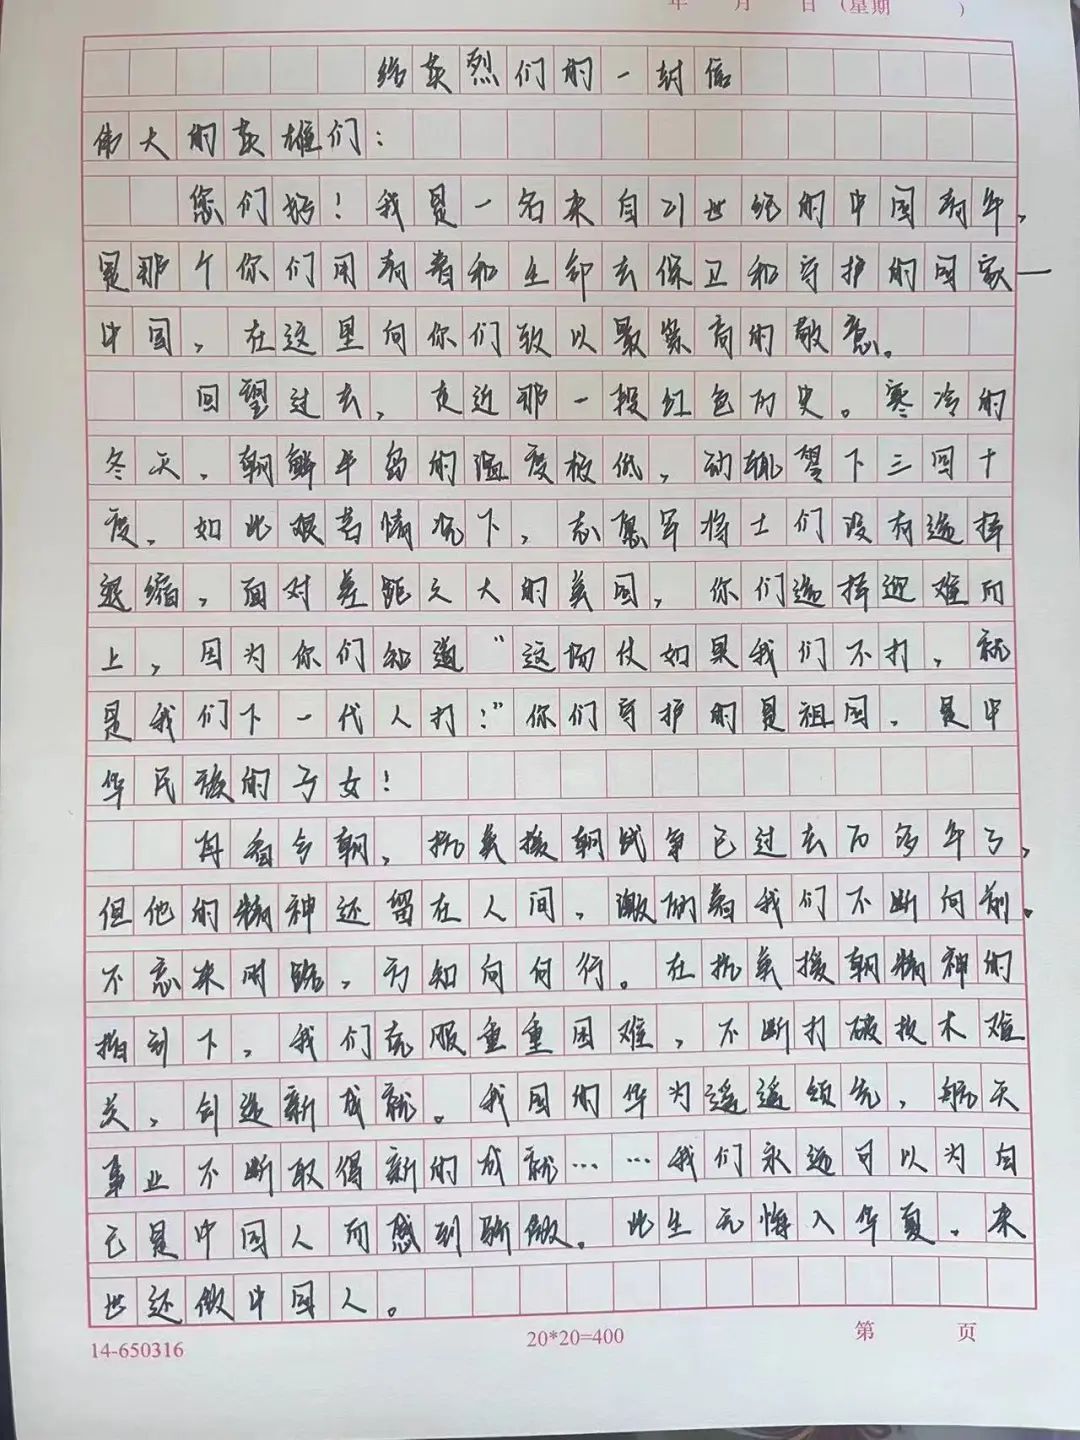 年 月 日 (星期 )
给英烈们的一封信
伟大的英雄们:
您们好!我是一名来自21世纪的中国青年,
是那个你们用青春和生命去保卫和守护的国家—
中国,在这里向你们致以最崇高的敬意。
回望过去,走近那一段红色历史。寒冷的
冬天,朝鲜半岛的温度极低,动辄零下三四十
度。如此艰苦情况下,志愿军将士们没有选择
退缩,面对差距之大的美国,你们选择迎难而
上,因为你们知道“这场仗如果我们不打,就
是我们下一代人打!”你们守护的是祖国,是中
华民族的子女!
再看今朝,抗美援朝战争已过去百多年了,
但他的精神还留在人间,激励着我们不断向前。
不忘来时路,方知向何行。在抗美援朝精神的
指引下,我们克服重重困难,不断打破技术难
关,创造新成就。我国的华为遥遥领先,航天
事业不断取得新的成就……我们永远可以为自
己是中国人而感到骄傲。此生无悔入华夏,来
世还做中国人。
14-650316
20*20=400
第 页